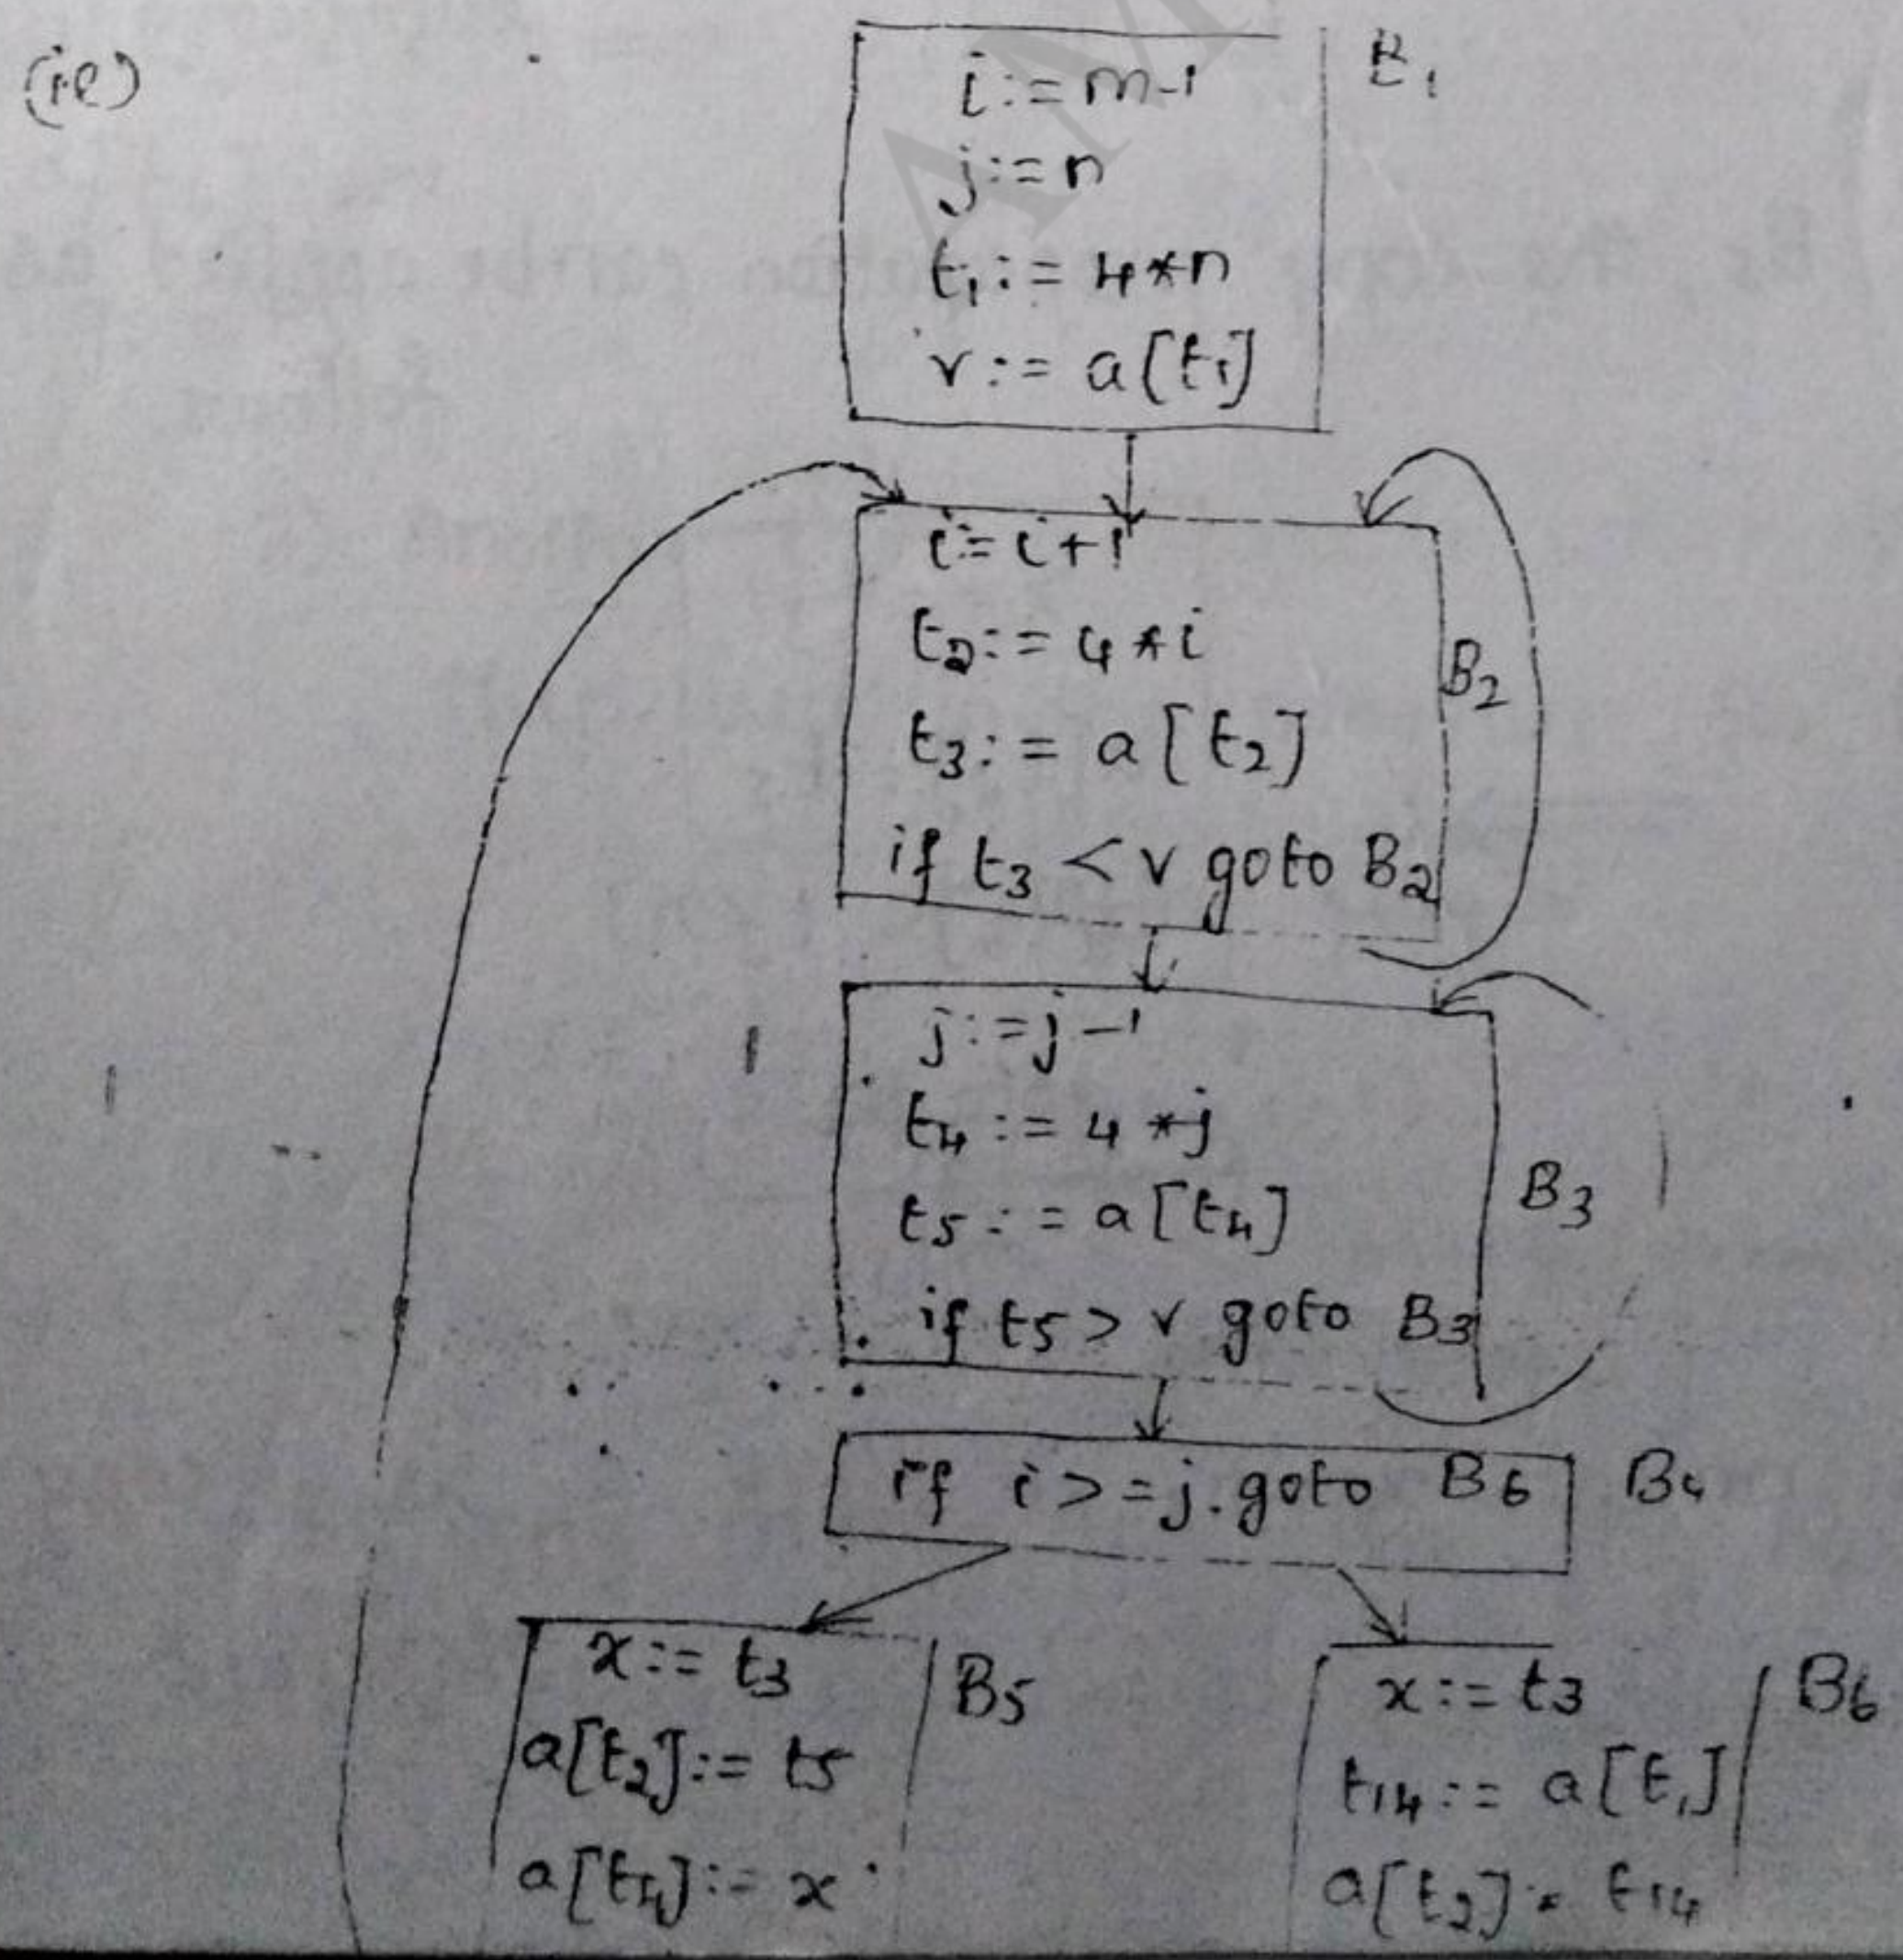 (ie)
i:= m-1
B1
j:= n
t1:= 4*n
v:= a[t1]
i= i+1
t2:= 4*i
B2
t3:= a[t2]
if t3 < v goto B2
j:= j-1
t4:= 4*j
B3
t5:= a[t4]
if t5 > v goto B3
if i>=j. goto B6
B4
x:= t3
B5
a[t2]:= t5
a[t4]:= x
x:= t3
B6
t14:= a[t1]
a[t2]:= t14